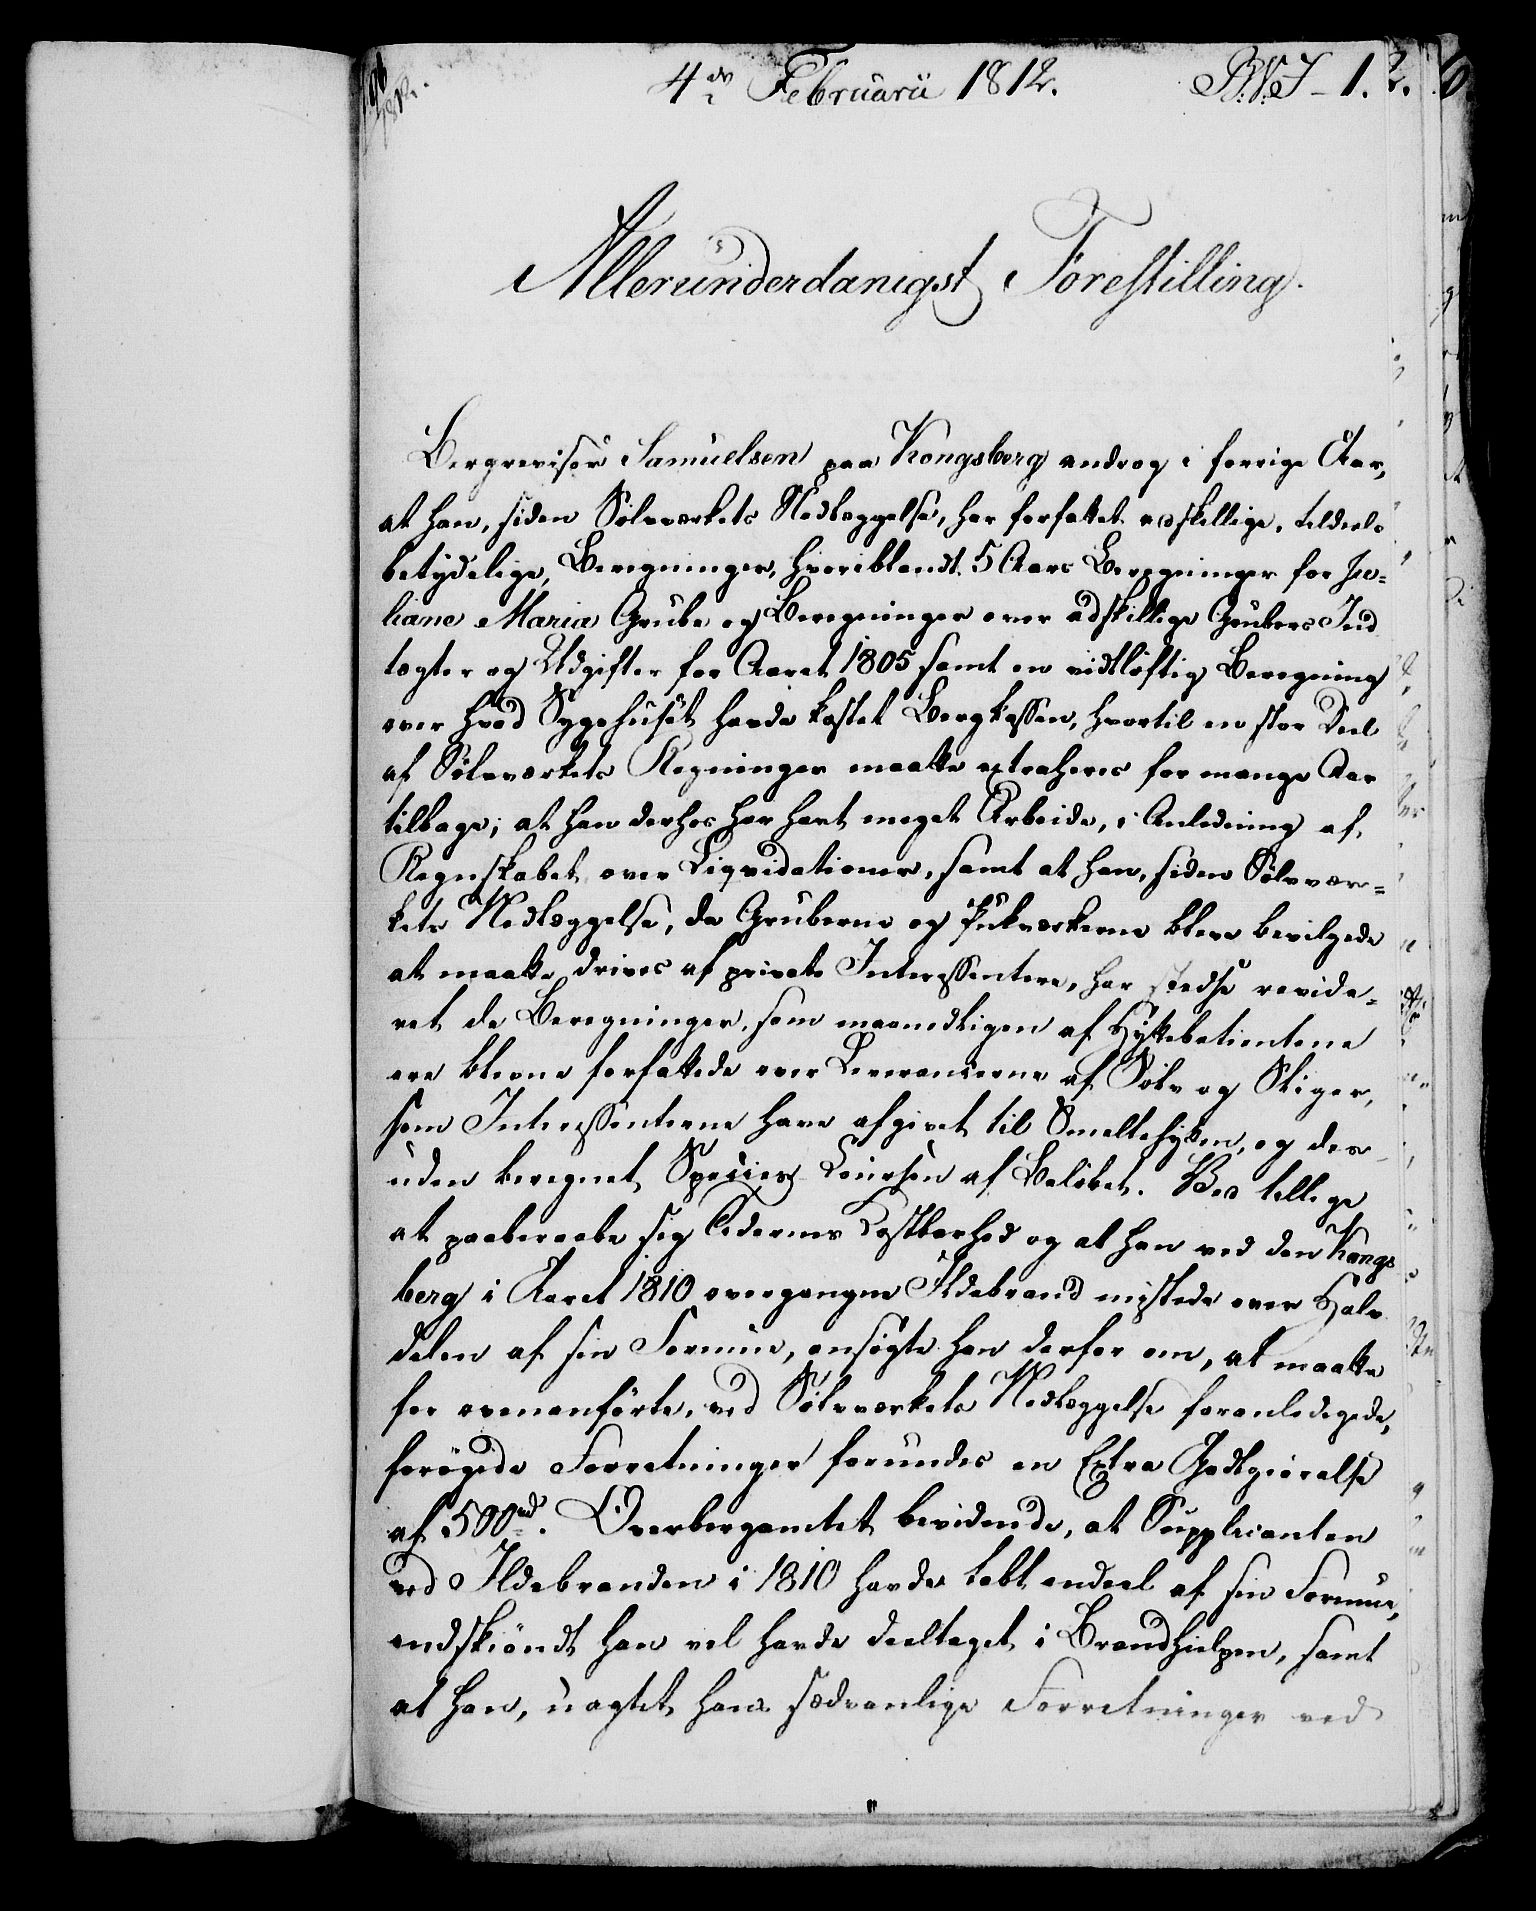 4de Februarii 1812. R.V.I - 1.
Allerunderdanigst Forestilling.
Bergrevisor Samuelsen paa Kongsberg androg i forrige Aar,
at han, siden Sølvværkets Nedlæggelse, har forfattet adskillige, tildeels
betydelige, Beregninger, hvoriblandt 5 Aars Beregninger for Ju-
liane Maria Grube og Beregninger over adskillige Grubers Ind
tægter og Udgifter for Aaret 1805 samt en vidtløftig Beregning
over hvad Sygehuset havde kostet Bergkassen, hvortil en stor Deel
af Sølvværkets Regninger maatte extraheres for mange Aar
tilbage; at han derhos har havt meget Arbeide, i Anledning af
Regnskabet over Liqvidationer, samt at han, siden Sølvvær-
kets Nedlæggelse, da Gruberne og Pukværkerne bleve bevilgede
at maatte drives af private Interessentere, har stedse revide-
ret de Beregninger, som maanedligen af Hyttebetientene
ere blevne forfattede over Leverancerne af Sølv og Sliger,
som Interessenterne have afgivet til Smeltehytten, og des-
uden beregnet Species Coursen af Beløbet. Ved tillige
at paaberaabe sig Tidernes Kostbarhed og at han ved den Kongs
berg i Aaret 1810 overgangne Ildebrand mistede over Halv
delen af sin Formue, ansøgte han derfor om, at maatte
for ovenanførte, ved Sølvværkets Nedlæggelse foranledigede,
forøgede Forretninger forundes en Extra Godtgiørelse
af 500 rd. Overbergamtet bevidnede, at Supplicanten
ved Ildebranden i 1810 havde tabt endeel af sin Formue,
endskiøndt han vel havde deeltaget i Brandhielpen, samt
at han, uagtet hans sædvanlige Forretninger ved